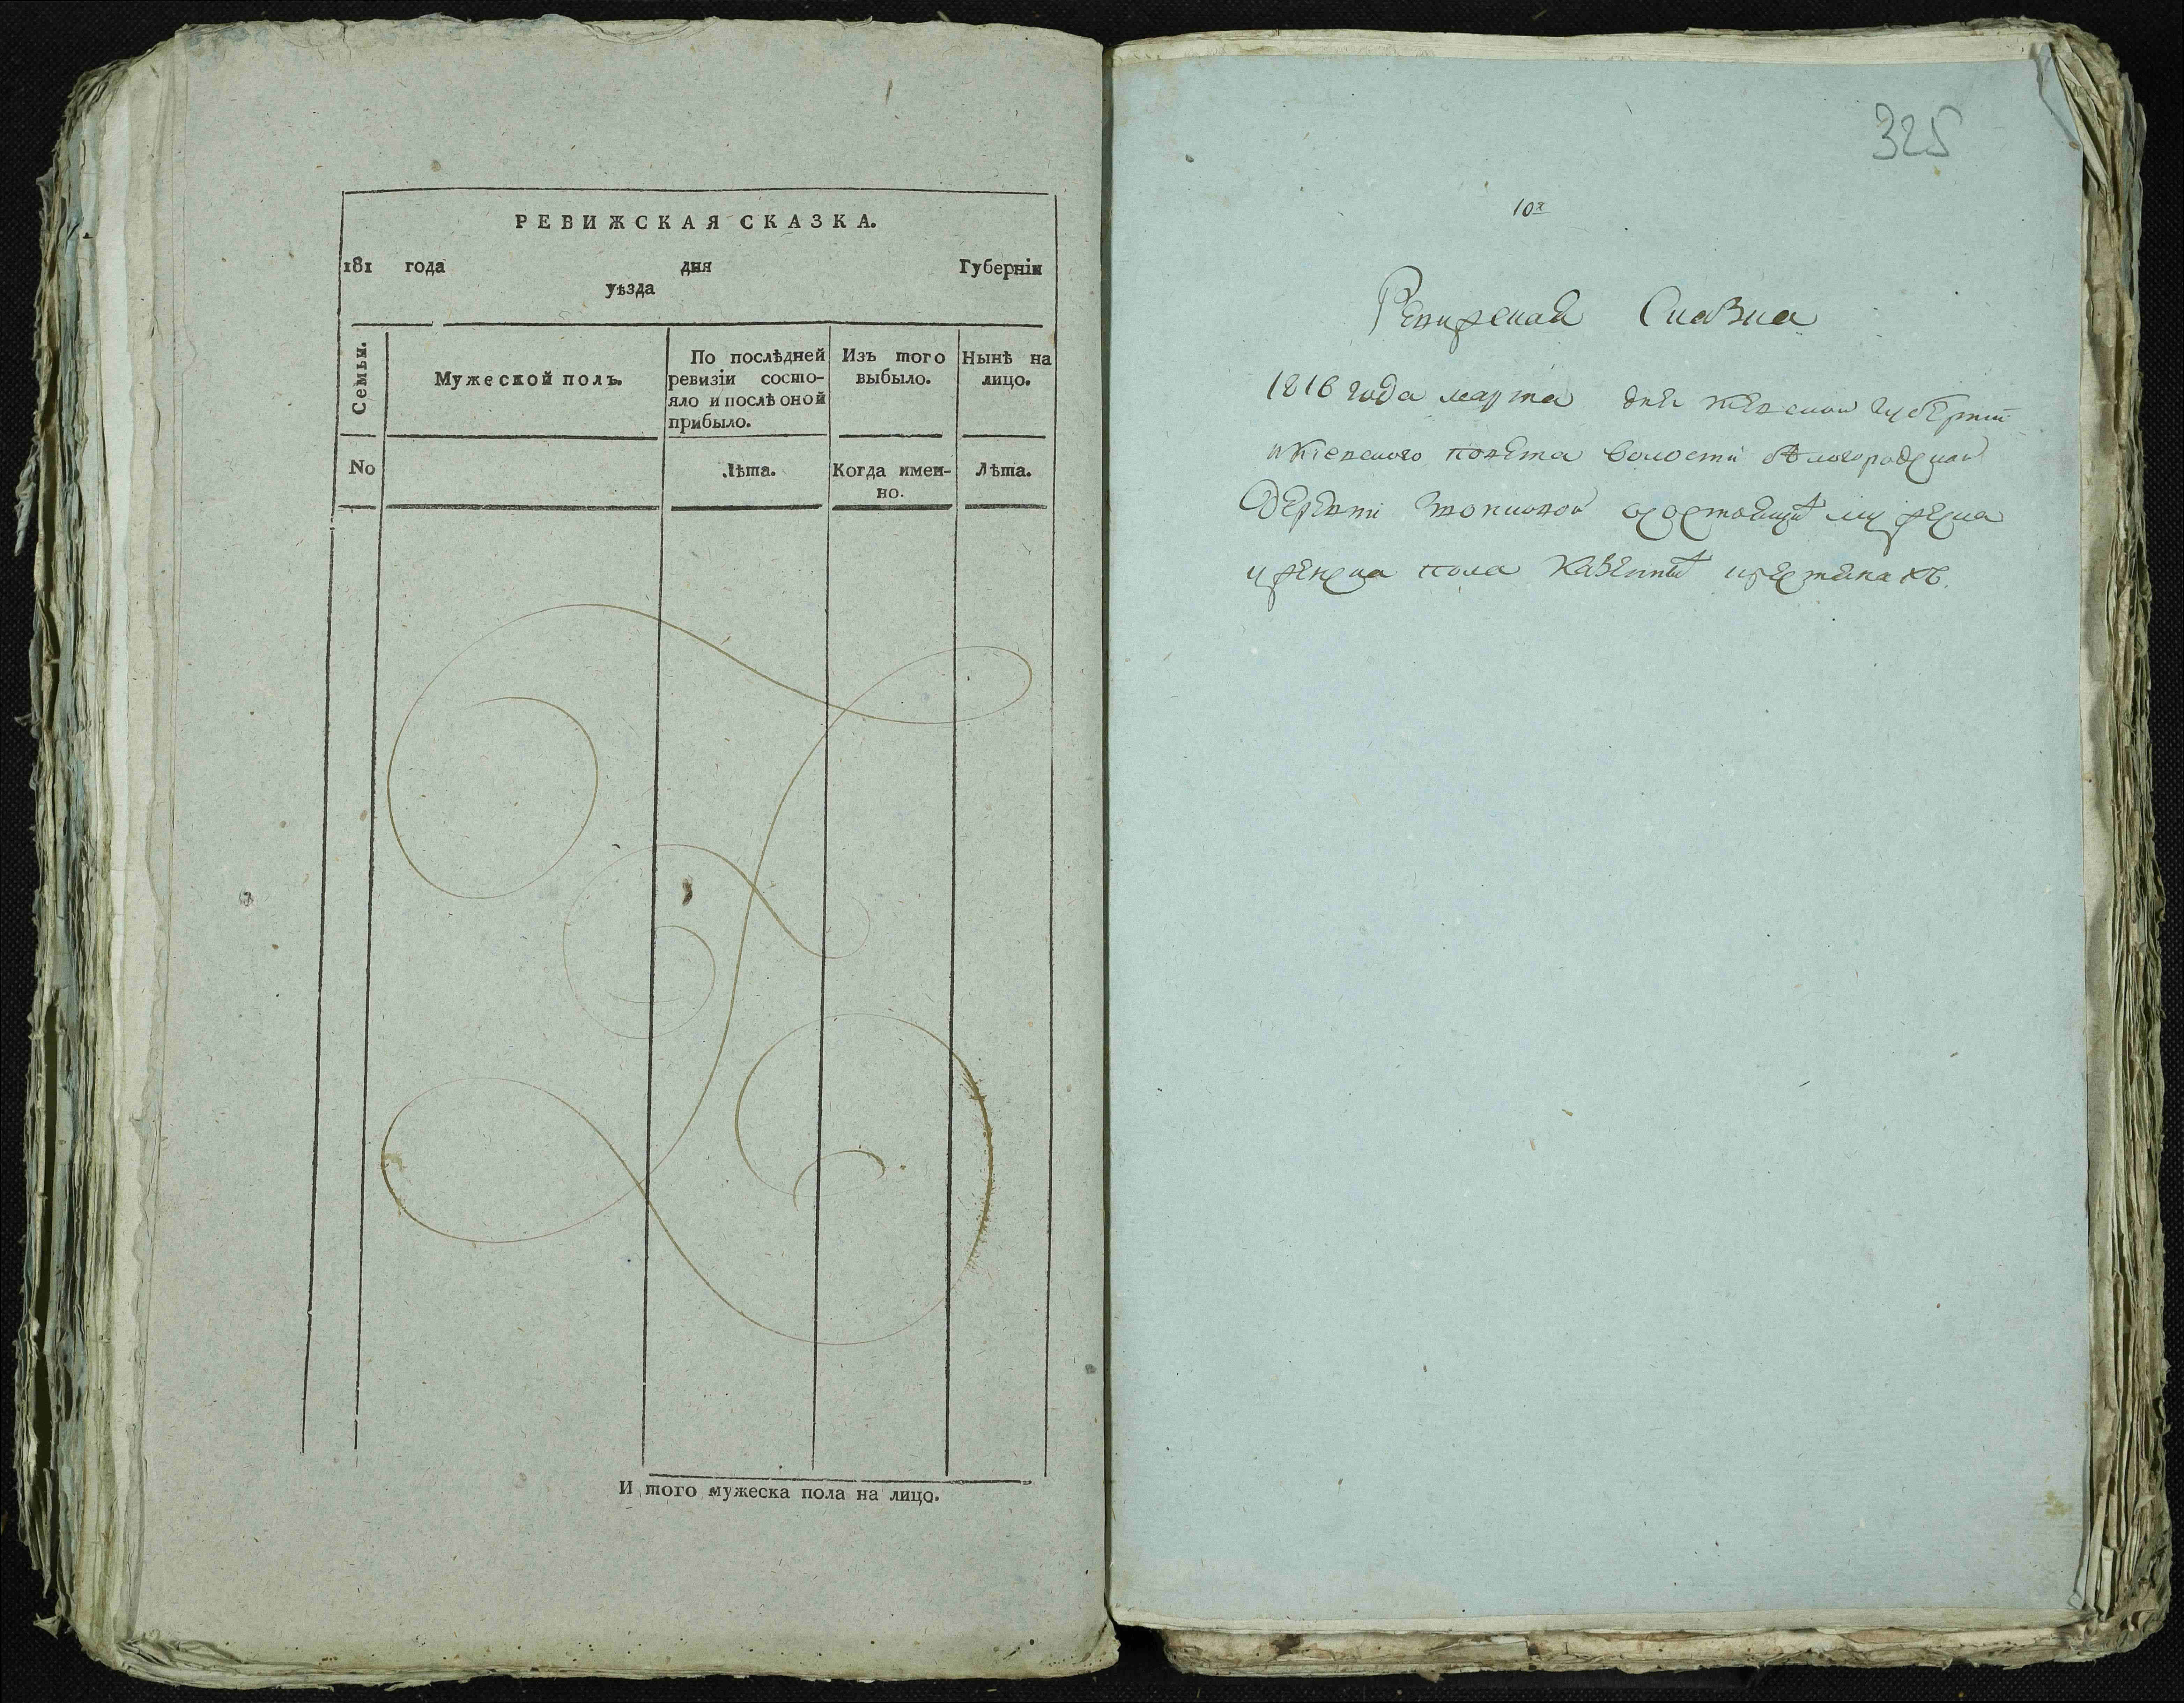 РЕВИЖСКАЯ СКАЗКА.
181 года дня Губерніи
уѣзда
Семьи.
Мужеской полъ.
По послѣдней
ревизіи состо-
яло и послѣ оной
прибыло.
Изъ того
выбыло.
Нынѣ на
лицо.
No
Лѣта.
Когда имен-
но.
Лѣта.
И того мужеска пола на лицо.
325
10я
Ревизская Сказка
1816 года марта дня киевской губернии
и киевского повета волости белогородской
Деревни состоящих мужеска
и женска пола казенных крестянахъ.